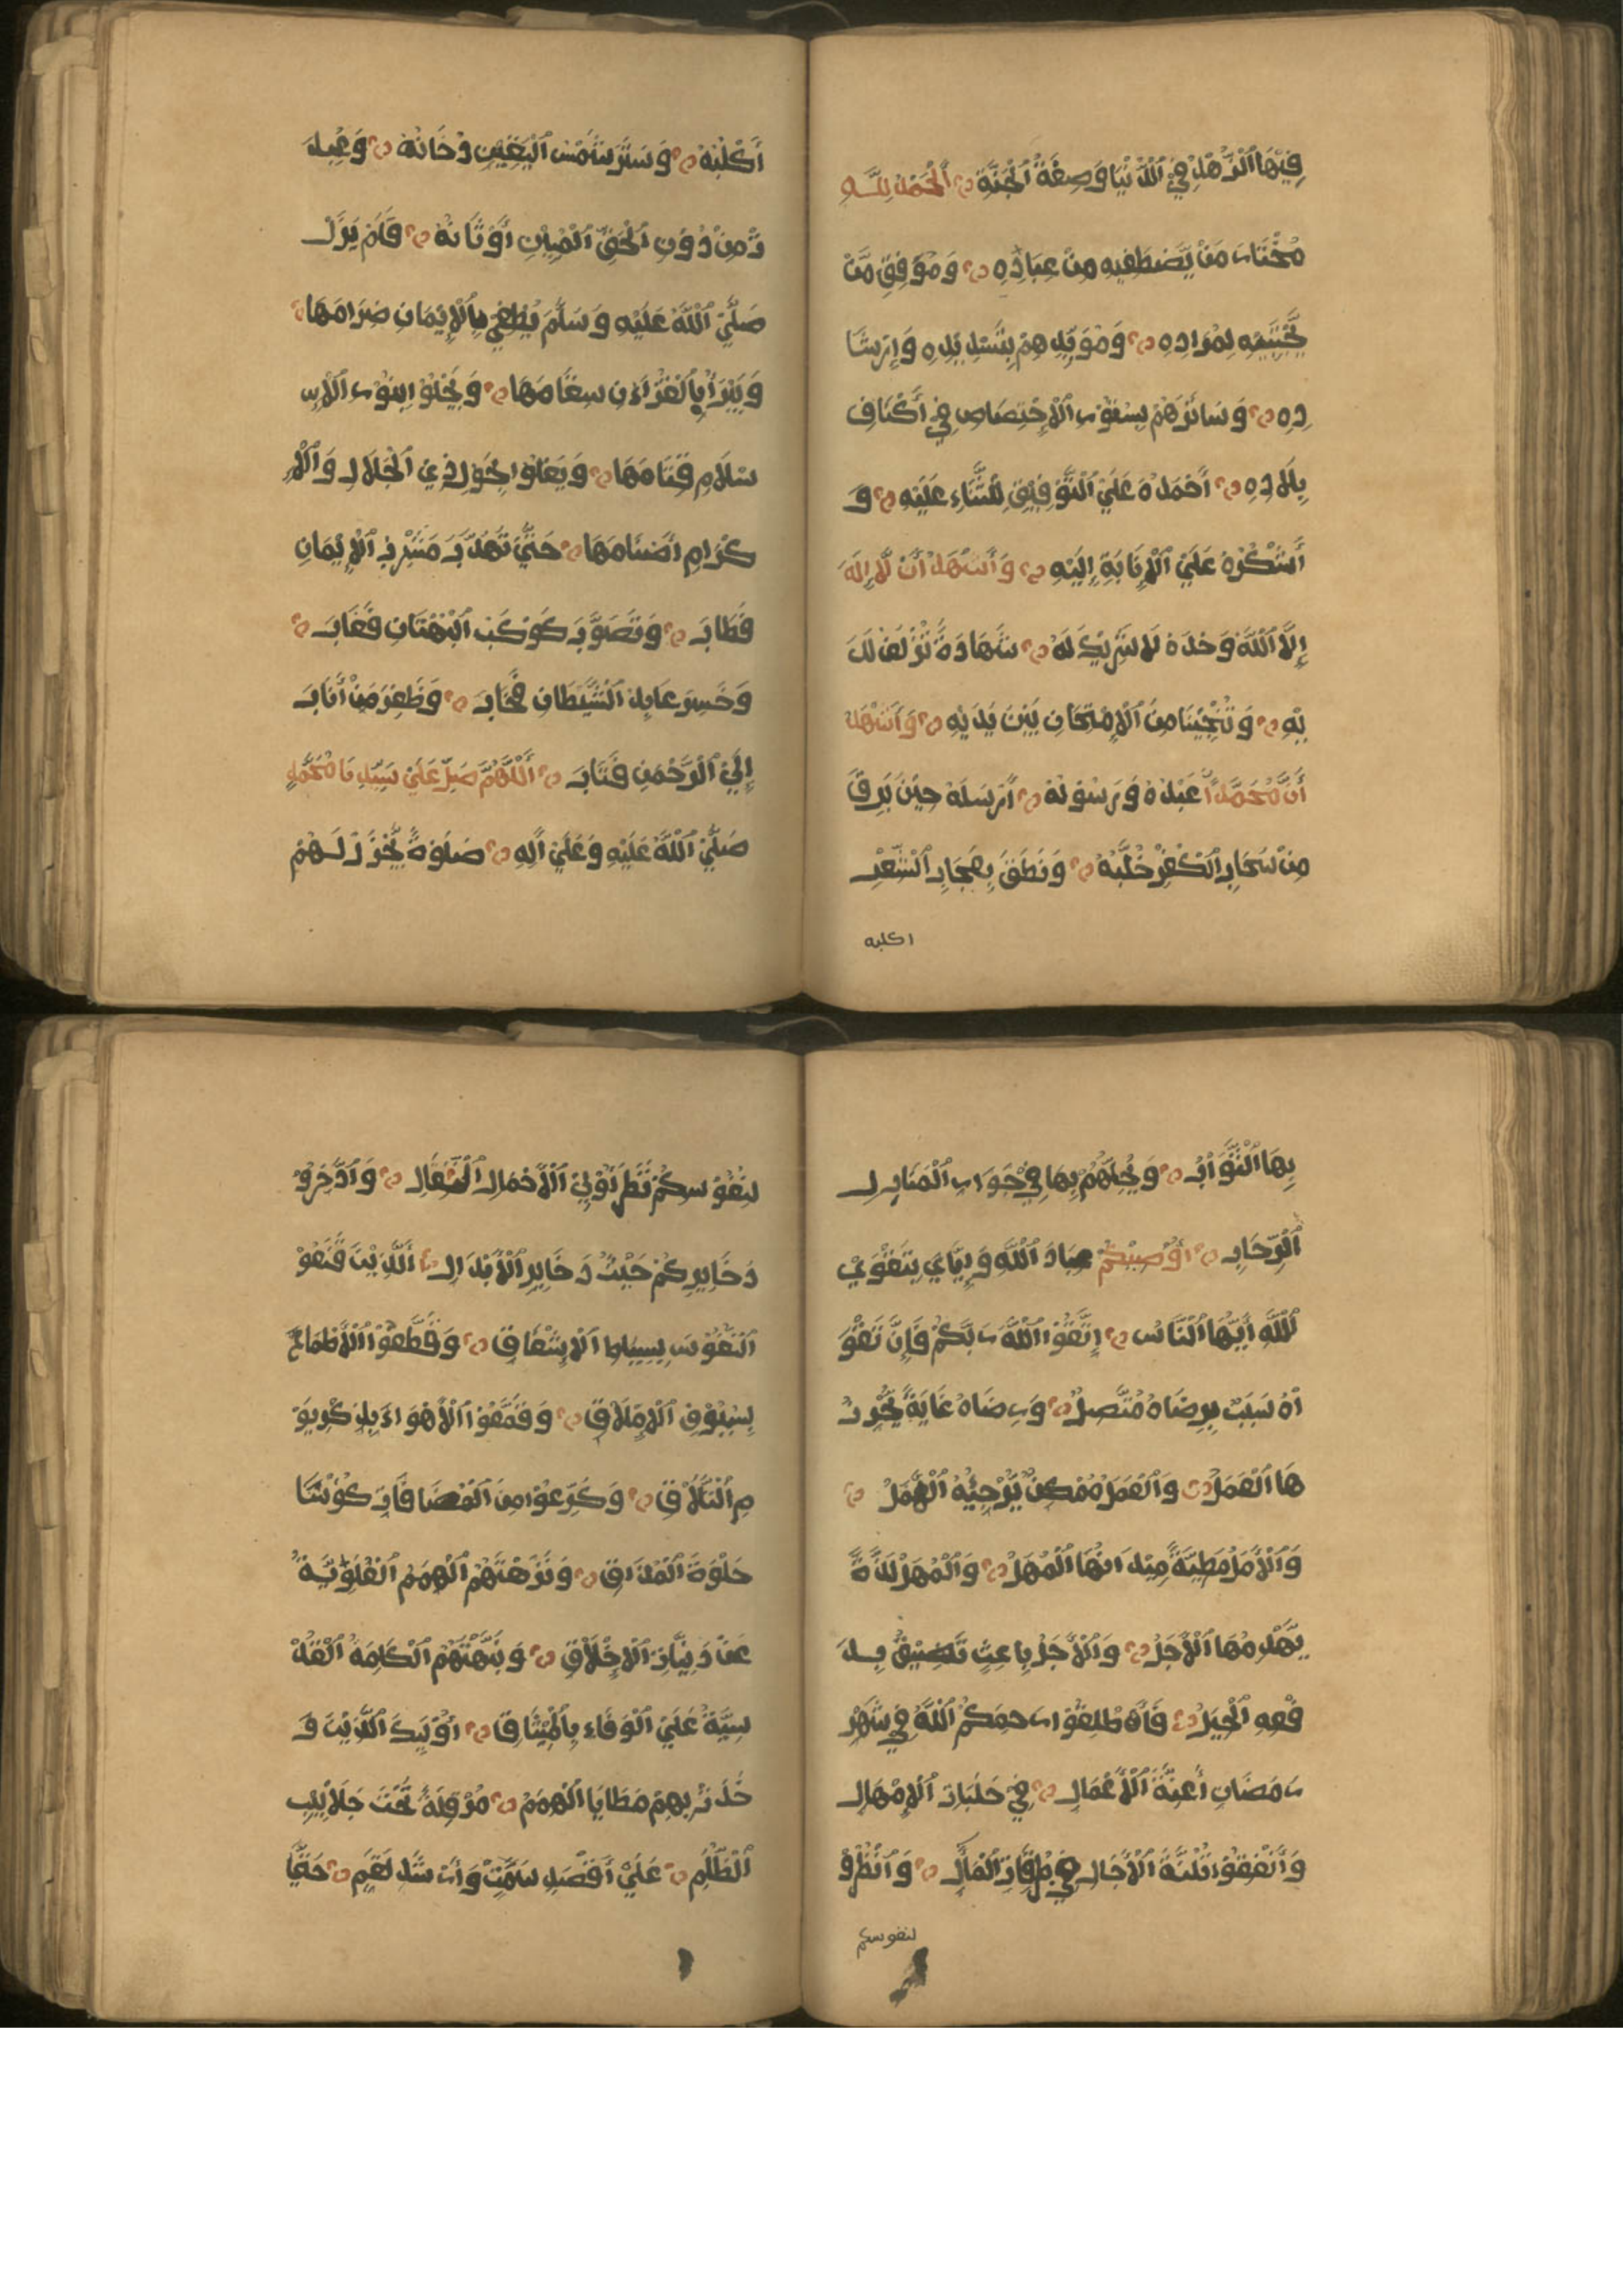 فِيْهَا الزُّهْدُ فِي الدُّنْيَا وَصِفَةُ الْجَنَّةِ اَلْحَمْدُ لِلّٰهِ
مُخْتَارِ مَنْ يَّصْطَفِيهِ مِنْ عِبَادِهِ وَمُوَفِّقِ مَنْ
يَّجْتَبِيْهِ لِمُرَادِهِ وَمُؤَيِّدِهِمْ بِتَسْدِيْدِهِ وَإِرْشَا
دِهِ وَسَائِرُهُمْ بِسُوْرِ الْإِخْتِصَاصِ فِي أَكْنَافِ
بِلَادِهِ أَحْمَدُهُ عَلَي التَّوْفِيْقِ لِلثَّنَاءِ عَلَيْهِ وَ
أَشْكُرُهُ عَلَي الْإِنَابَةِ إِلَيْهِ وَأَشْهَدُ أَنْ لَّا إِلَهَ
إِلَّا اللّٰهُ وَحْدَهُ لَا شَرِيْكَ لَهُ شَهَادَةً تُزْلِفُ لَدَ
يْهِ وَتُنْجِيْنَا مِنَ الْإِمْتِحَانِ بَيْنَ يَدَيْهِ وَأَشْهَدُ
أَنَّ مُحَمَّدًا عَبْدُهُ وَرَسُوْلُهُ أَرْسَلَهُ حِيْنَ بَرَقَ
مِنْ سَحَابِ الْكُفْرِ خُلَّبُهُ وَنَطَقَ بِهِجَابِ الشِّعْرِ
اكلبه
أَكْلُبُهُ وَسَتَرَ شَمْسَ الْيَقِيْنِ دُخَانُهُ وَعُبِدَ
تْ مِنْ دُوْنِ الْحَقِّ الْمُبِيْنِ أَوْثَانُهُ فَلَمْ يَزَلْ
صَلَّي اللّٰهُ عَلَيْهِ وَسَلَّمَ يُطْفِي بِالْإِيْمَانِ ضِرَامَهَا
وَيَبْرَأُ بِالْقُرْاٰنِ سِقَامَهَا وَيَجْلُوْا بِنُوْرِ الْإِ
سْلَامِ قَتَامَهَا وَيَعْلُوْا بِحَوْلِ ذِي الْجَلَالِ وَالْإِ
كْرَامِ أَصْنَامَهَا حَتَّي تَهَدَّبَ مَشْرِبُ الْإِيْمَانِ
فَطَابَ وَتَصَوَّبَ كَوْكَبُ الْبُهْتَانِ فَغَابَ
وَخَسِرَ عَابِدُ الشَّيْطَانِ فَخَابَ وَظَفِرَ مَنْ أَنَابَ
إِلَي الرَّحْمٰنِ فَتَابَ اَللّٰهُمَّ صَلِّ عَلَي سَيِّدِنَا مُحَمَّدٍ
صَلَّي اللّٰهُ عَلَيْهِ وَعَلَي اٰلِهِ صَلٰوةً يُجْزَلُ لَهُمْ
بِهَا الثَّوَابُ وَيُحِلُّهُمْ بِهَا فِي جَوَارِ الْمَنَازِلِ
الرِّحَابِ أُوْصِيْكُمْ عِبَادَ اللّٰهِ وَإِيَّايَ بِتَقْوَي
اللّٰهِ أَيُّهَا النَّاسُ إِتَّقُوا اللّٰهَ رَبَّكُمْ فَإِنَّ تَقْوَ
اهُ سَبَبٌ بِرِضَاهُ مُتَّصِلٌ وَرِضَاهُ غَايَةٌ يُّحْرِزُ
هَا الْعَمَلُ وَالْعَمَلُ مُمْكِنٌ يُّزْجِيْهُ الْأَمَلُ
وَالْأَمَلُ مَطِيَّةٌ مِيْدَانُهَا الْمُهَلُ وَالْمُهَلُ لَذَّةٌ
يَّهْدِمُهَا الْأَجَلُ وَالْأَجَلُ بَاعِثٌ تَضِيْقُ بِدَ
فْعِهِ الْحِيَلُ فَأَطْلِقُوْا رَحِمَكُمُ اللّٰهُ فِي شَهْرِ
رَمَضَانِ أَعِنَّةَ الْأَعْمَالِ فِي حَلَبَاتِ الْإِمْهَالِ
وَأَنْفِقُوْا ثُلُثَةَ الْاٰجَالِ فِي طُرُقَاتِ الْمَاٰلِ وَانْظُرُوْ
لنفوسكم
لِنُفُوْسِكُمْ نَظَرَ أُوْلِي الْأَحْمَالِ الثِّقَالِ وَادَّخِرُوْ
دَخَايِرَكُمْ حَيْثُ دَخَايِرُ الْأَبْدَالِ اَلَّذِيْنَ قَنَعُوْ
النُّفُوْسَ بِسِيَاطِ الْإِشْفَاقِ وَقَطَعُوْا الْأَطْمَاعَ
بِسُيُوْفِ الْإِمْلَاقِ وَقَمَعُوْا الْأَهْوَاءَ بِذِكْرِ يَوْ
مِ التَّلَاقِ وَكَرَّعُوْا مِنَ الْمُصَافَاتِ كُؤُوْسًا
حُلْوَةَ الْمَذَاقِ وَنَزَّهَتْهُمُ الْهِمَمُ الْعُلْوِيَّةُ
عَنْ دَنِيَّاتِ الْإِخْلَاقِ وَنَبَّهَتْهُمُ الْكَلِمَةُ الْقُدْ
سِيَّةُ عَلَي الْوَفَاءِ بِالْمِيْثَاقِ أُوْلٰئِكَ الَّذِيْنَ وَ
خَدَتْ بِهِمْ مَطَايَا الْهِمَمِ مُرْقِلَةً تَحْتَ جَلَابِيْبِ
الظُّلَمِ عَلَي أَفْضَلِ سَمْتٍ وَأَرْشَدِ لَقَمٍ حَتَّي